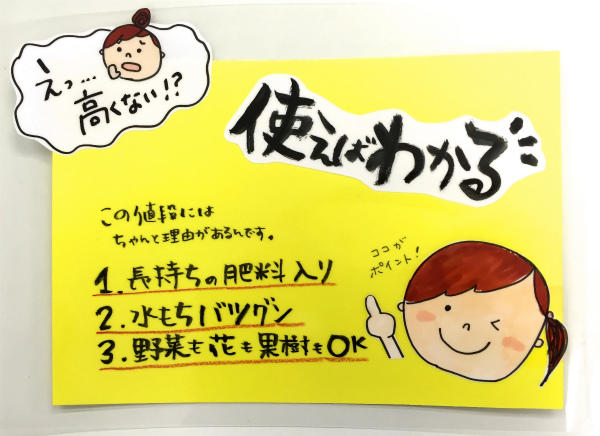 えっ…
高くない!?
使えばわかる
この値段には
ちゃんと理由があるんです。
ココが
ポイント!
1.長持ちの肥料入り
2.水もちバツグン
3.野菜も花も果樹もOK